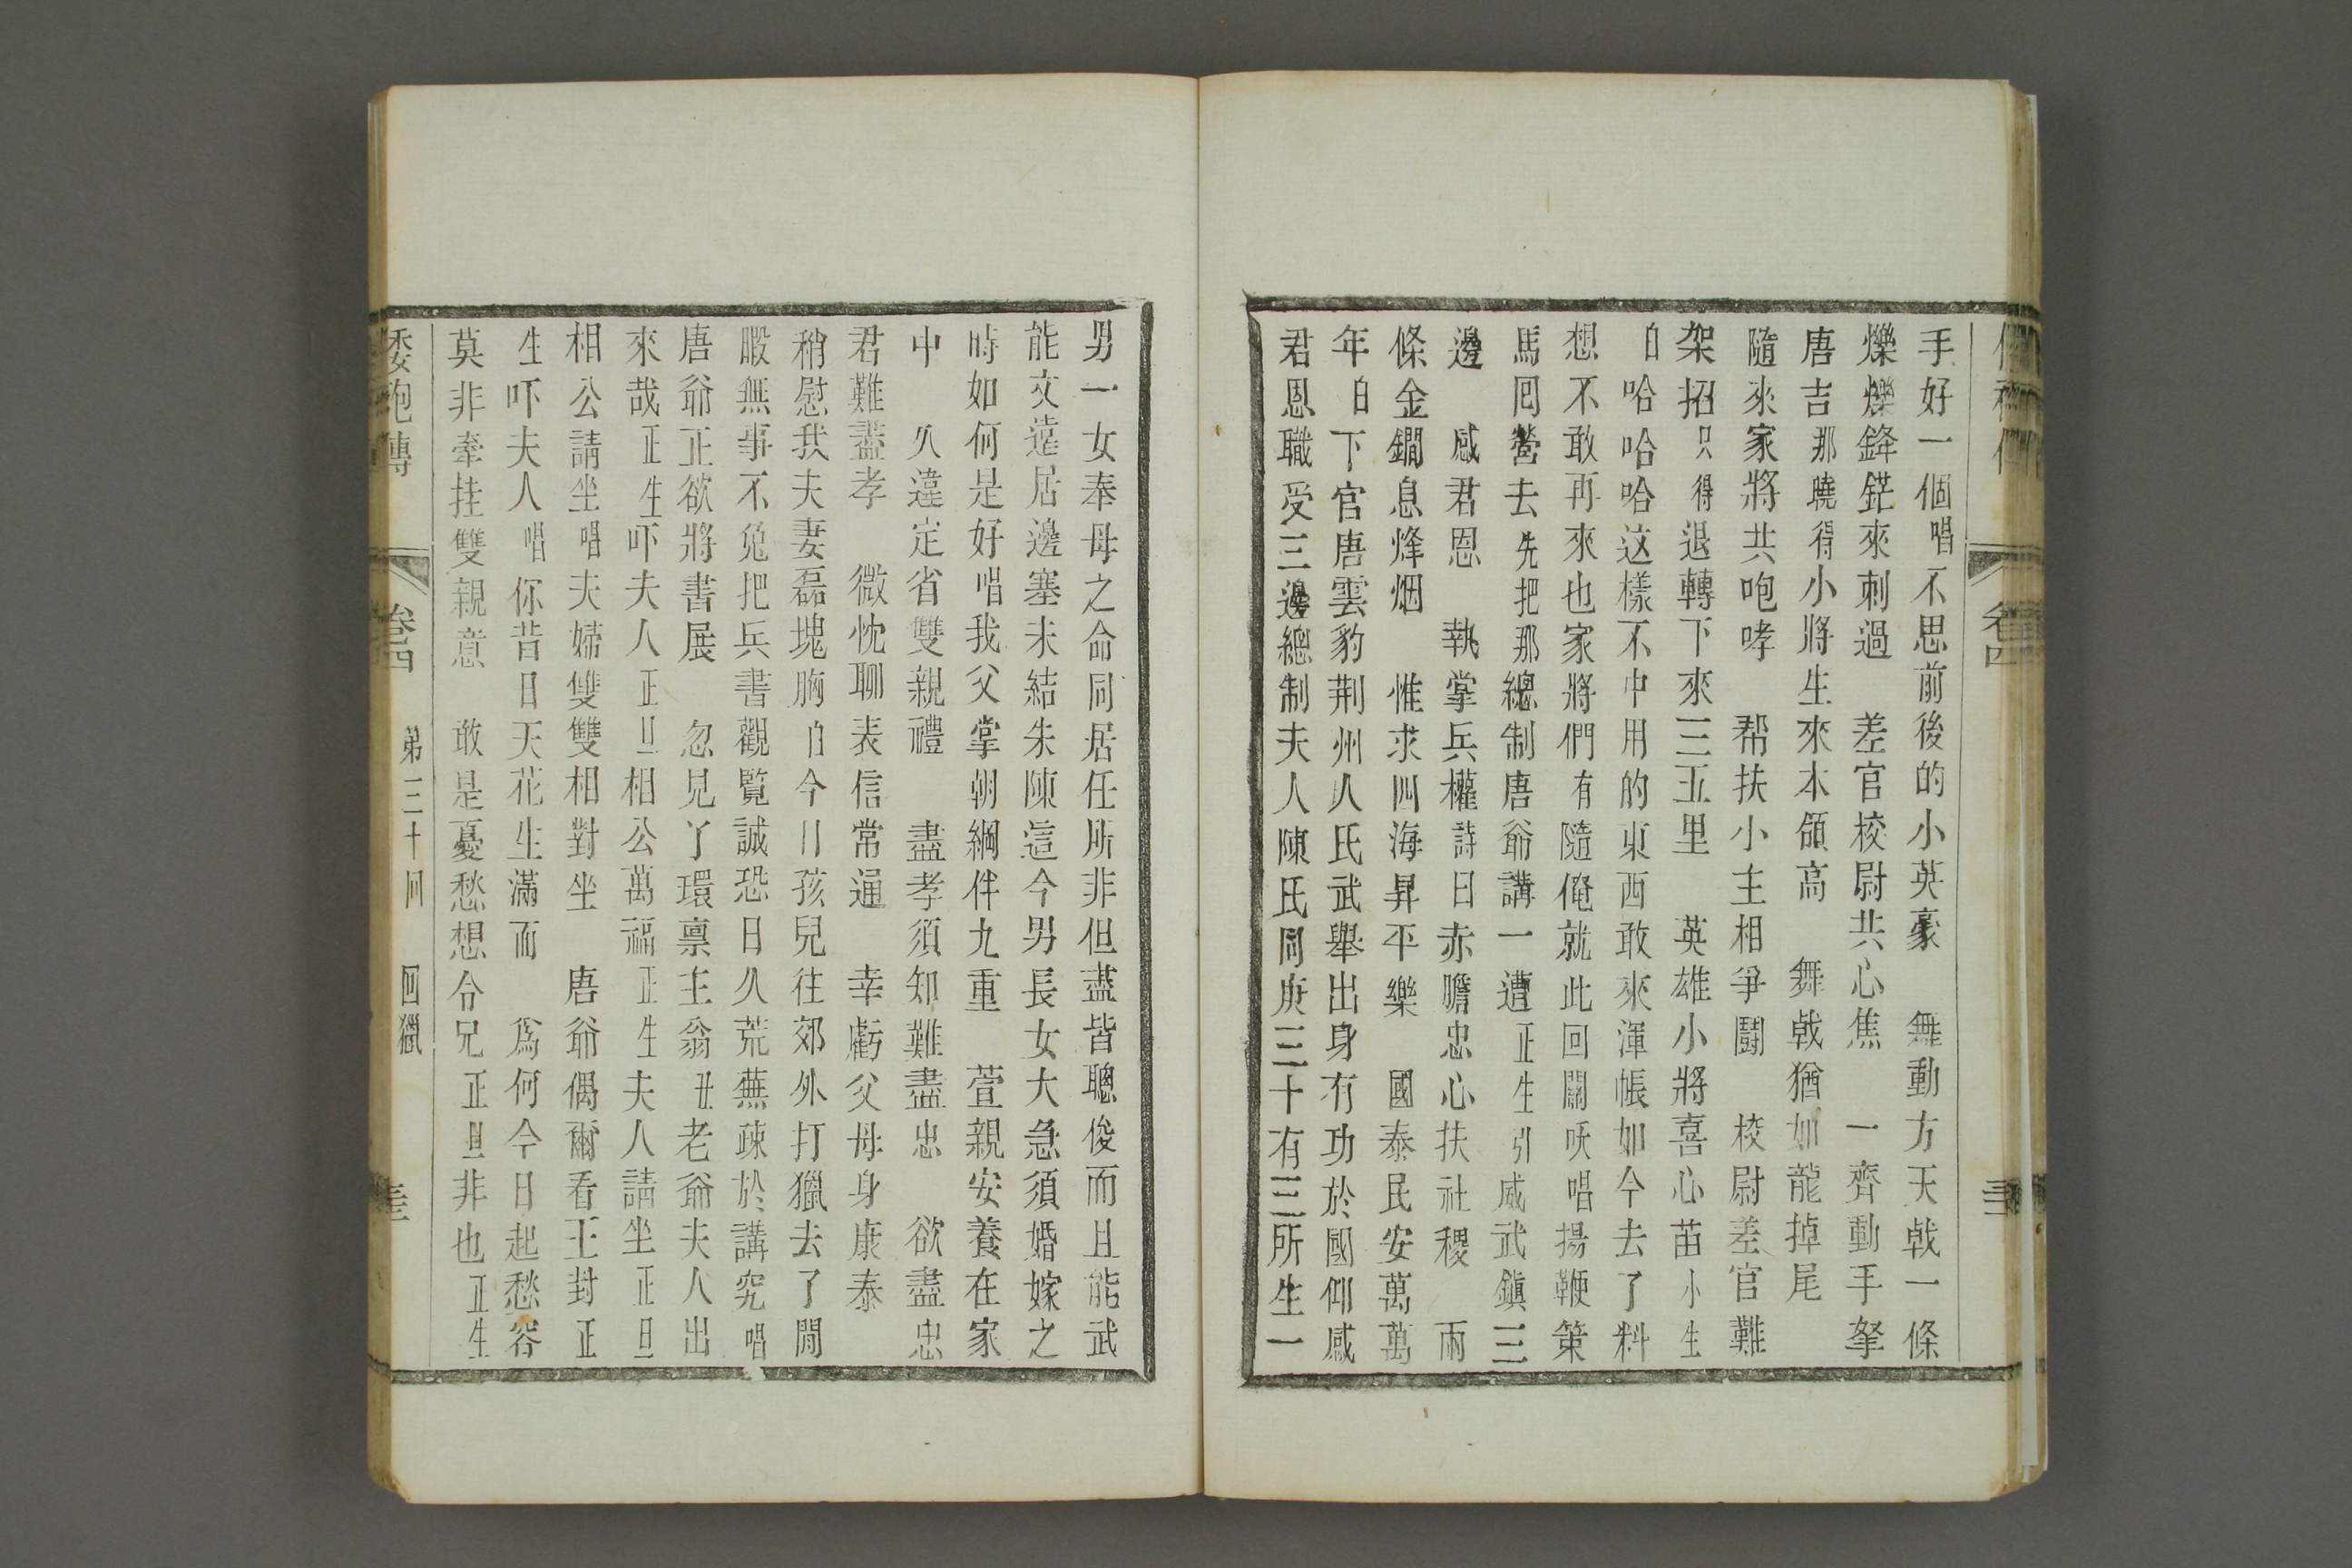 手好一個唱不思前後的小英豪　舞動方天戟一條
爍爍鋒鋩來刺過　差官校尉共心焦　一齊動手拏
唐吉那曉得小將生來本領高　舞戟猶如龍掉尾
隨來家將共咆哮　帮扶小主相爭鬪　校尉差官難
架招只得退轉下來三五里　英雄小將喜心苗小生
白哈哈哈这樣不中用的東西敢來渾帳如今去了料
想不敢再來也家將們有隨俺就此回關吙唱揚鞭策
馬回營去先把那總制唐爺講一遭正生引威武鎭三
邊　感君恩　執掌兵權詩曰赤膽忠心扶社稷　兩
條金鐧息烽烟　惟求四海昇平樂　國泰民安萬萬
年白下官唐雲豹荆州人氏武舉出身有功於國仰感
君恩職受三邊總制夫人陳氏同庚三十有三所生一
男一女奉母之命同居任所非但盡皆聰俊而且能武
能文遠居邊塞未結朱陳這今男長女大急須婚嫁之
時如何是好唱我父掌朝綱伴九重　萱親安養在家
中　久違定省雙親禮　盡孝須知難盡忠　欲盡忠
君難盡孝　微忱聊表信常通　幸虧父母身康泰
稍慰我夫妻磊塊胸白今日孩兒往郊外打獵去了閒
暇無事不免把兵書觀覧誠恐日久荒蕪疎於講究唱
唐爺正欲將書展　忽見丫環禀主翁丑老爺夫人出
來哉正生吓夫人正旦相公萬福正生夫人請坐正旦
相公請坐唱夫婦雙雙相對坐　唐爺偶爾看王封正
生吓夫人唱你昔日天花生滿面　爲何今日起愁容
莫非牽挂雙親意　敢是憂愁想令兄正旦非也正生
倭袍傳　卷四　第三十回　回獵